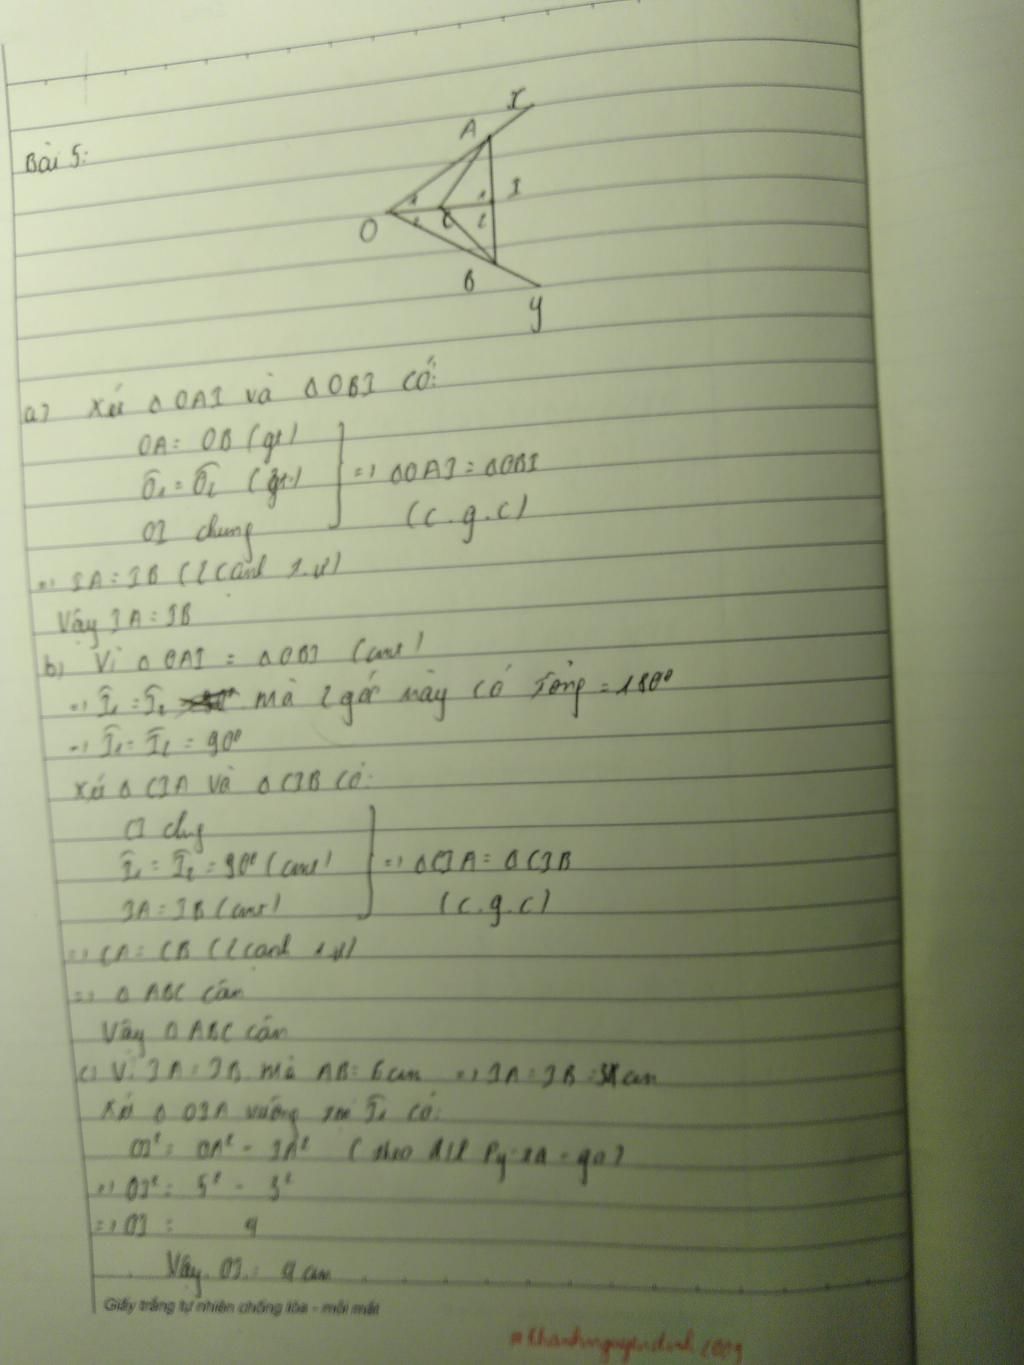 Bài 5:
x
A
I
1
1
O
2
C
2
B
y
a) Xét Δ OAI và Δ OBI có:
OA = OB (gt)
Ô1 = Ô2 (gt)
OI chung
=> ΔOAI = ΔOBI
(c.g.c)
=> IA = IB (2 cạnh t.ư)
Vậy IA = IB
b) Vì Δ OAI = Δ OBI (cmt)
=> Î1 = Î2 mà 2 góc này có tổng = 180°
=> Î1 = Î2 = 90°
Xét Δ CIA và Δ CIB có:
CI chg
Î1 = Î2 = 90° (cmt)
IA = IB (cmt)
=> ΔCIA = ΔCIB
(c.g.c)
=> CA = CB (2 cạnh t.ư)
=> Δ ABC cân
Vậy Δ ABC cân
c) Vì IA = IB mà AB = 6cm => IA = IB = 3cm
Xét Δ OIA vuông tại Î1 có:
OI² = OA² - IA² (theo đ/l Py-ta-go)
=> OI² = 5² - 3²
=> OI = 4
Vậy OI = 4 cm
Giấy trắng tự nhiên chống lóa - mỏi mắt
#khanhnguyendinh1009